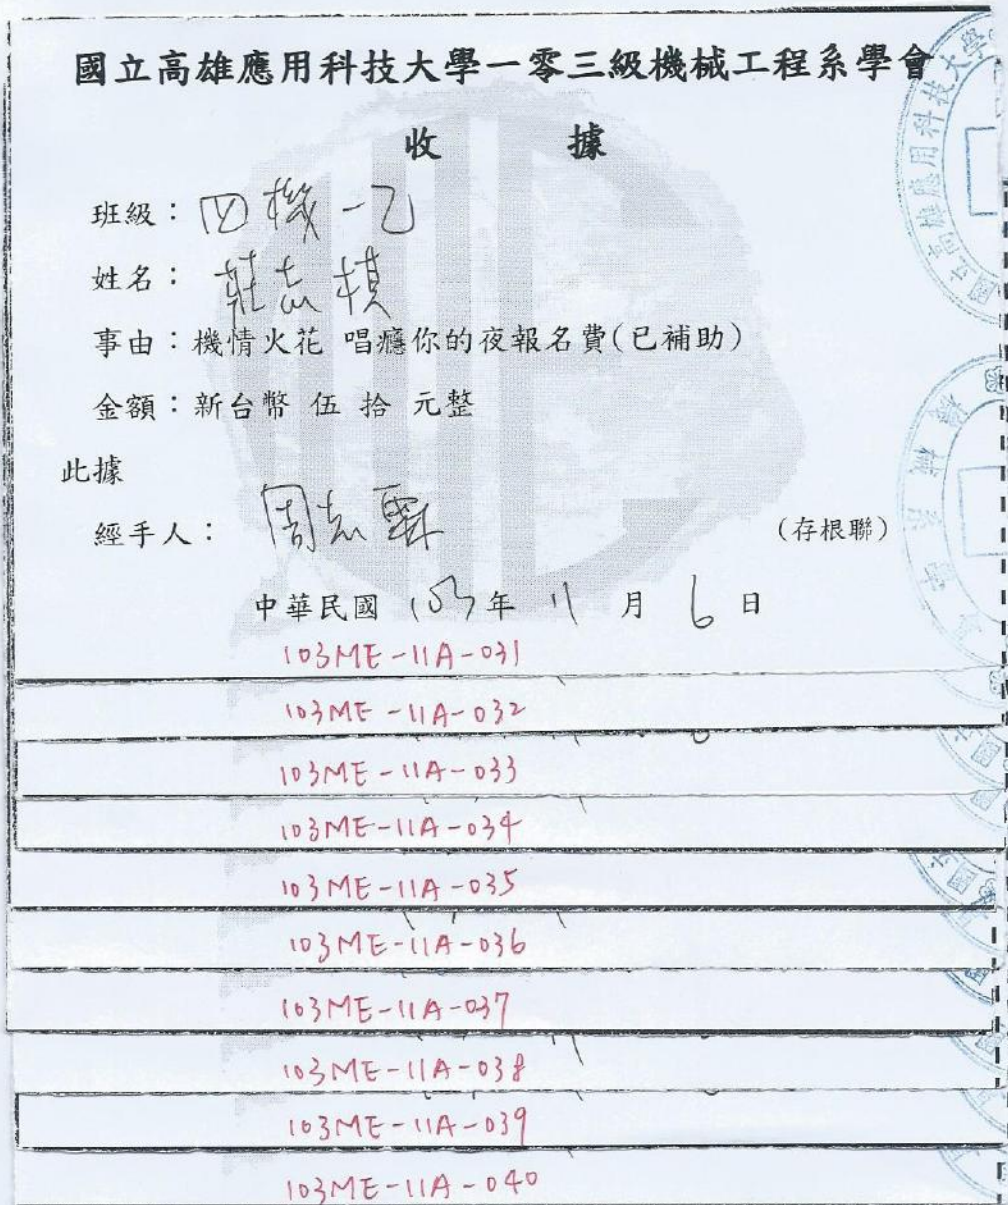 國立高雄應用科技大學一零三級機械工程系學會
收 據
班級：四機一乙
姓名：莊志棋
事由：機情火花 唱癮你的夜報名費(已補助)
金額：新台幣 伍 拾 元整
此據
經手人：周志霖
(存根聯)
中華民國 103 年 11 月 6 日
103ME-11A-031
103ME-11A-032
103ME-11A-033
103ME-11A-034
103ME-11A-035
103ME-11A-036
103ME-11A-037
103ME-11A-038
103ME-11A-039
103ME-11A-040
國立高雄應用科技大學